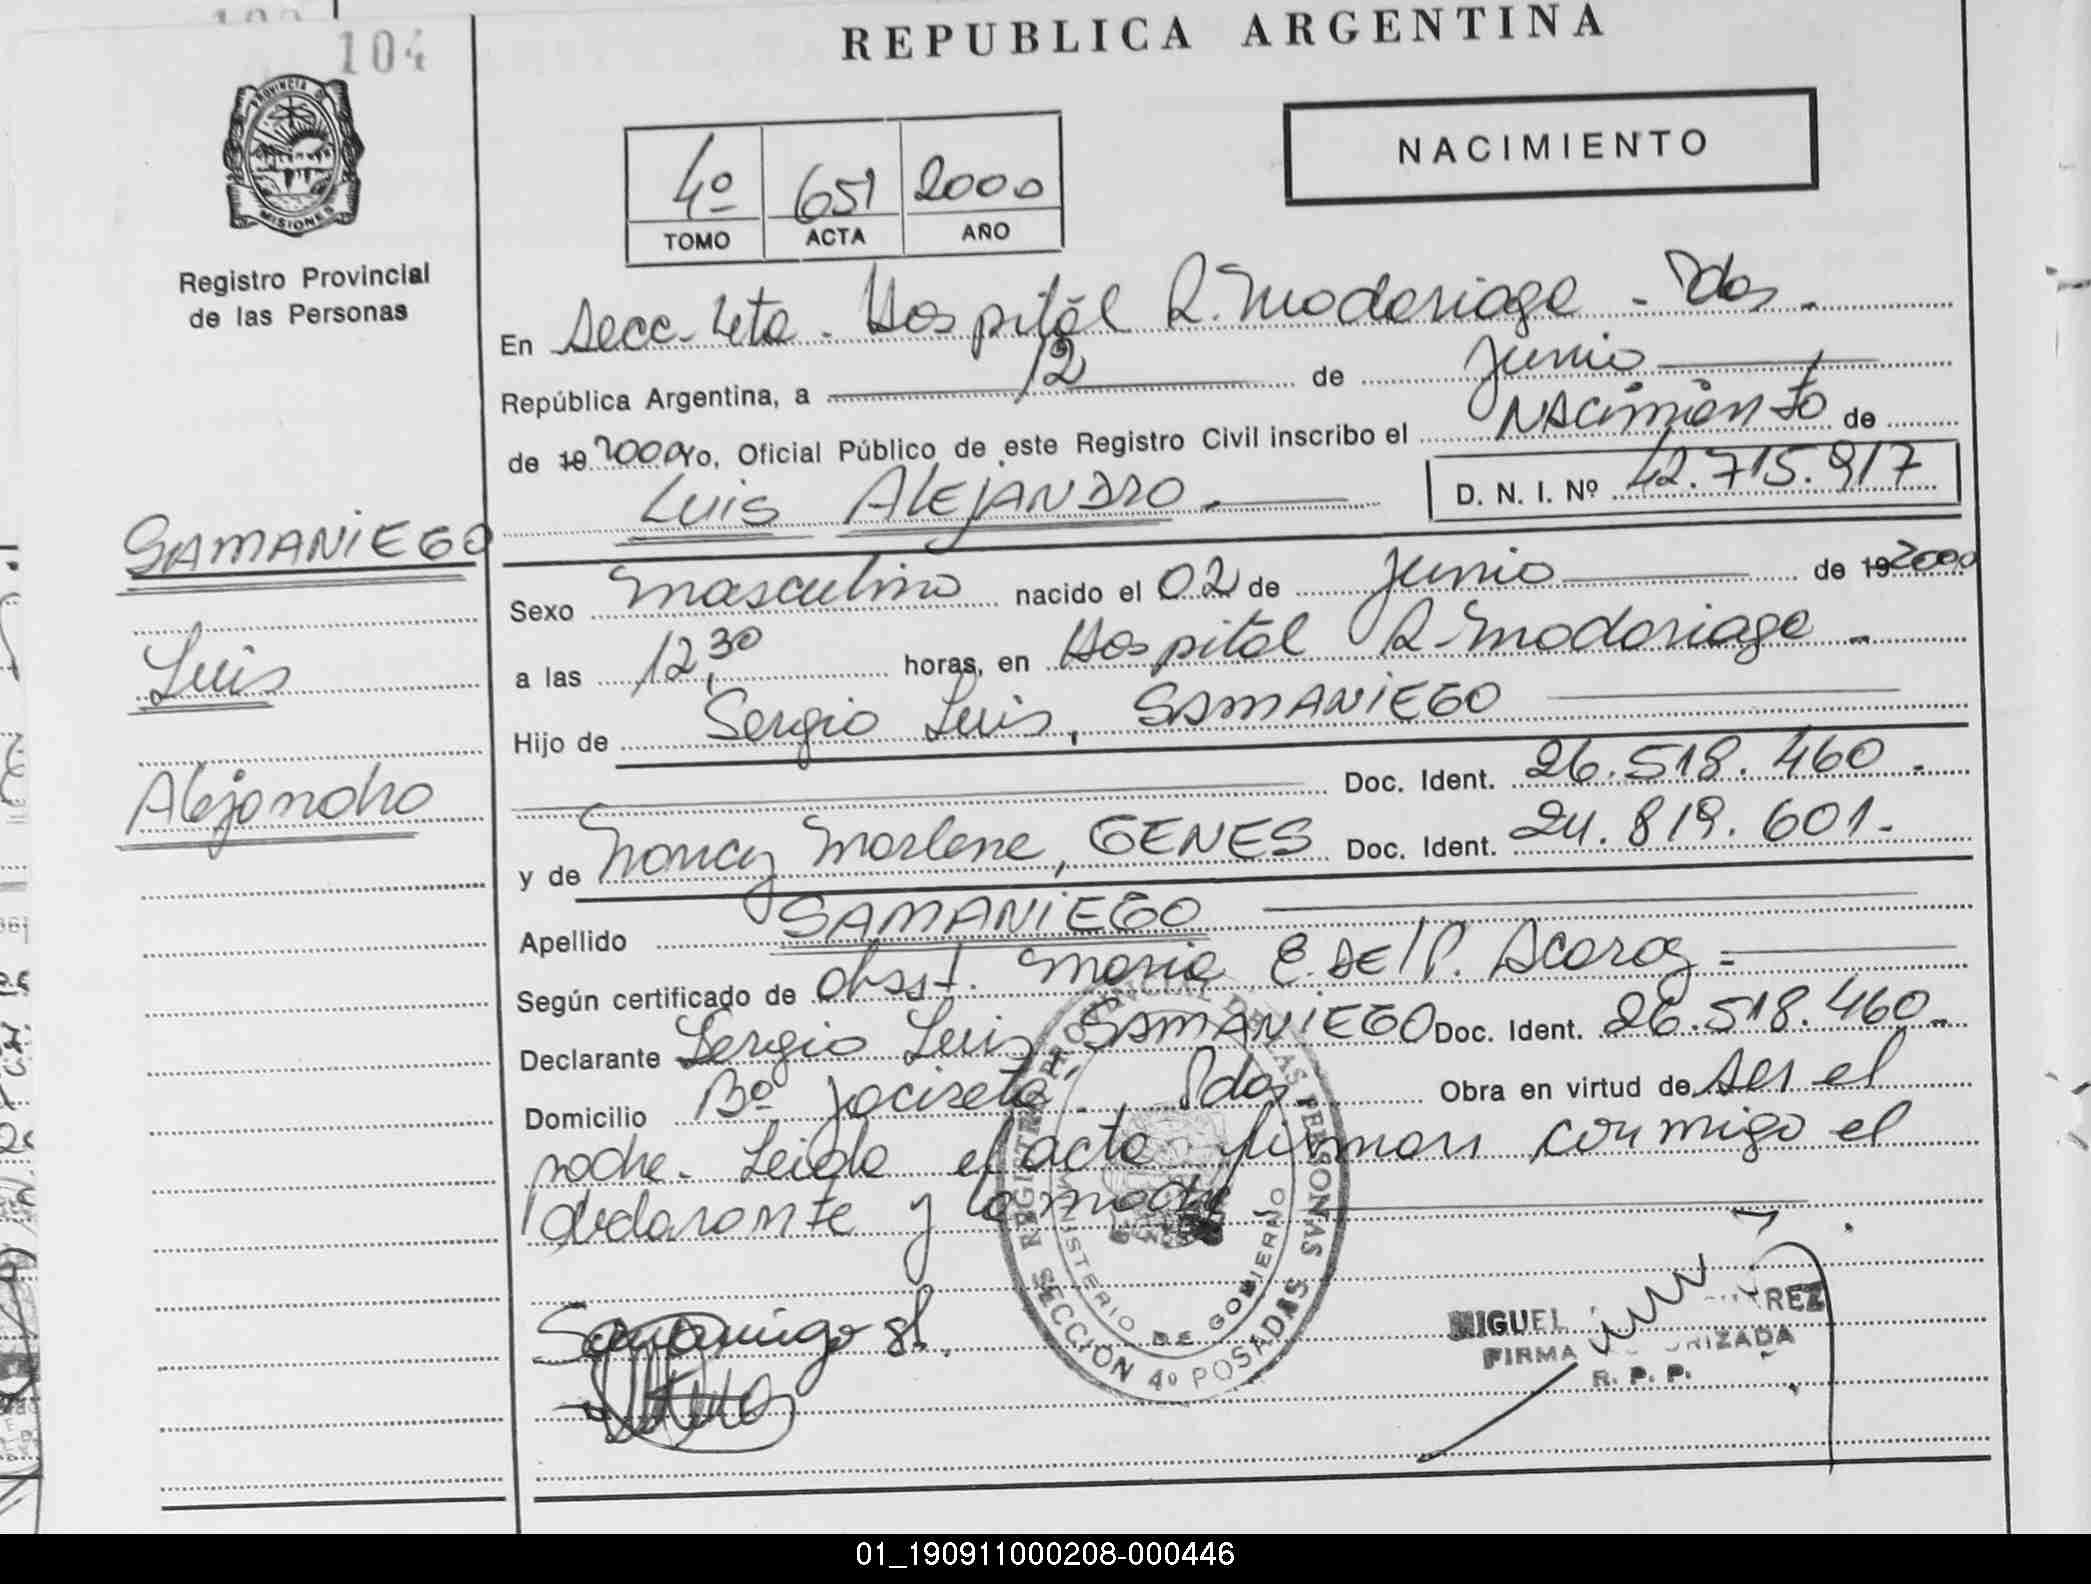 104
REPUBLICA ARGENTINA
PROVINCIA DE MISIONES
Registro Provincial
de las Personas
NACIMIENTO
4º 651 2000
TOMO ACTA AÑO
En Secc. 4ta. Hospital R. Madariaga - Pdas.
República Argentina, a 12 de Junio
de 19 2000 Yo, Oficial Público de este Registro Civil inscribo el NACIMIENTO de
LUIS ALEJANDRO.- D. N. I. Nº 42.715.917
SAMANIEGO
Luis
Alejandro
Sexo masculino nacido el 02 de Junio de 19 2000
a las 12,30 horas, en Hospital R. Madariaga -
Hijo de Sergio Luis, SAMANIEGO
Doc. Ident. 26.518.460.-
y de Nancy Marlene, GENES Doc. Ident. 24.819.601.-
Apellido SAMANIEGO
Según certificado de obst. Maria E. DEL P. Acaroz =
Declarante Sergio Luis, SAMANIEGO Doc. Ident. 26.518.460.-
Domicilio Bº Yacireta. Pdas. Obra en virtud de ser el
padre. Leida el acta firman conmigo el
declarante y la madre.
REGISTRO PROVINCIAL DE LAS PERSONAS
MINISTERIO DE GOBIERNO
SECCIÓN 4º POSADAS
Samaniego sl.
MIGUEL
FIRMA AUTORIZADA
R. P. P.
01_190911000208-000446